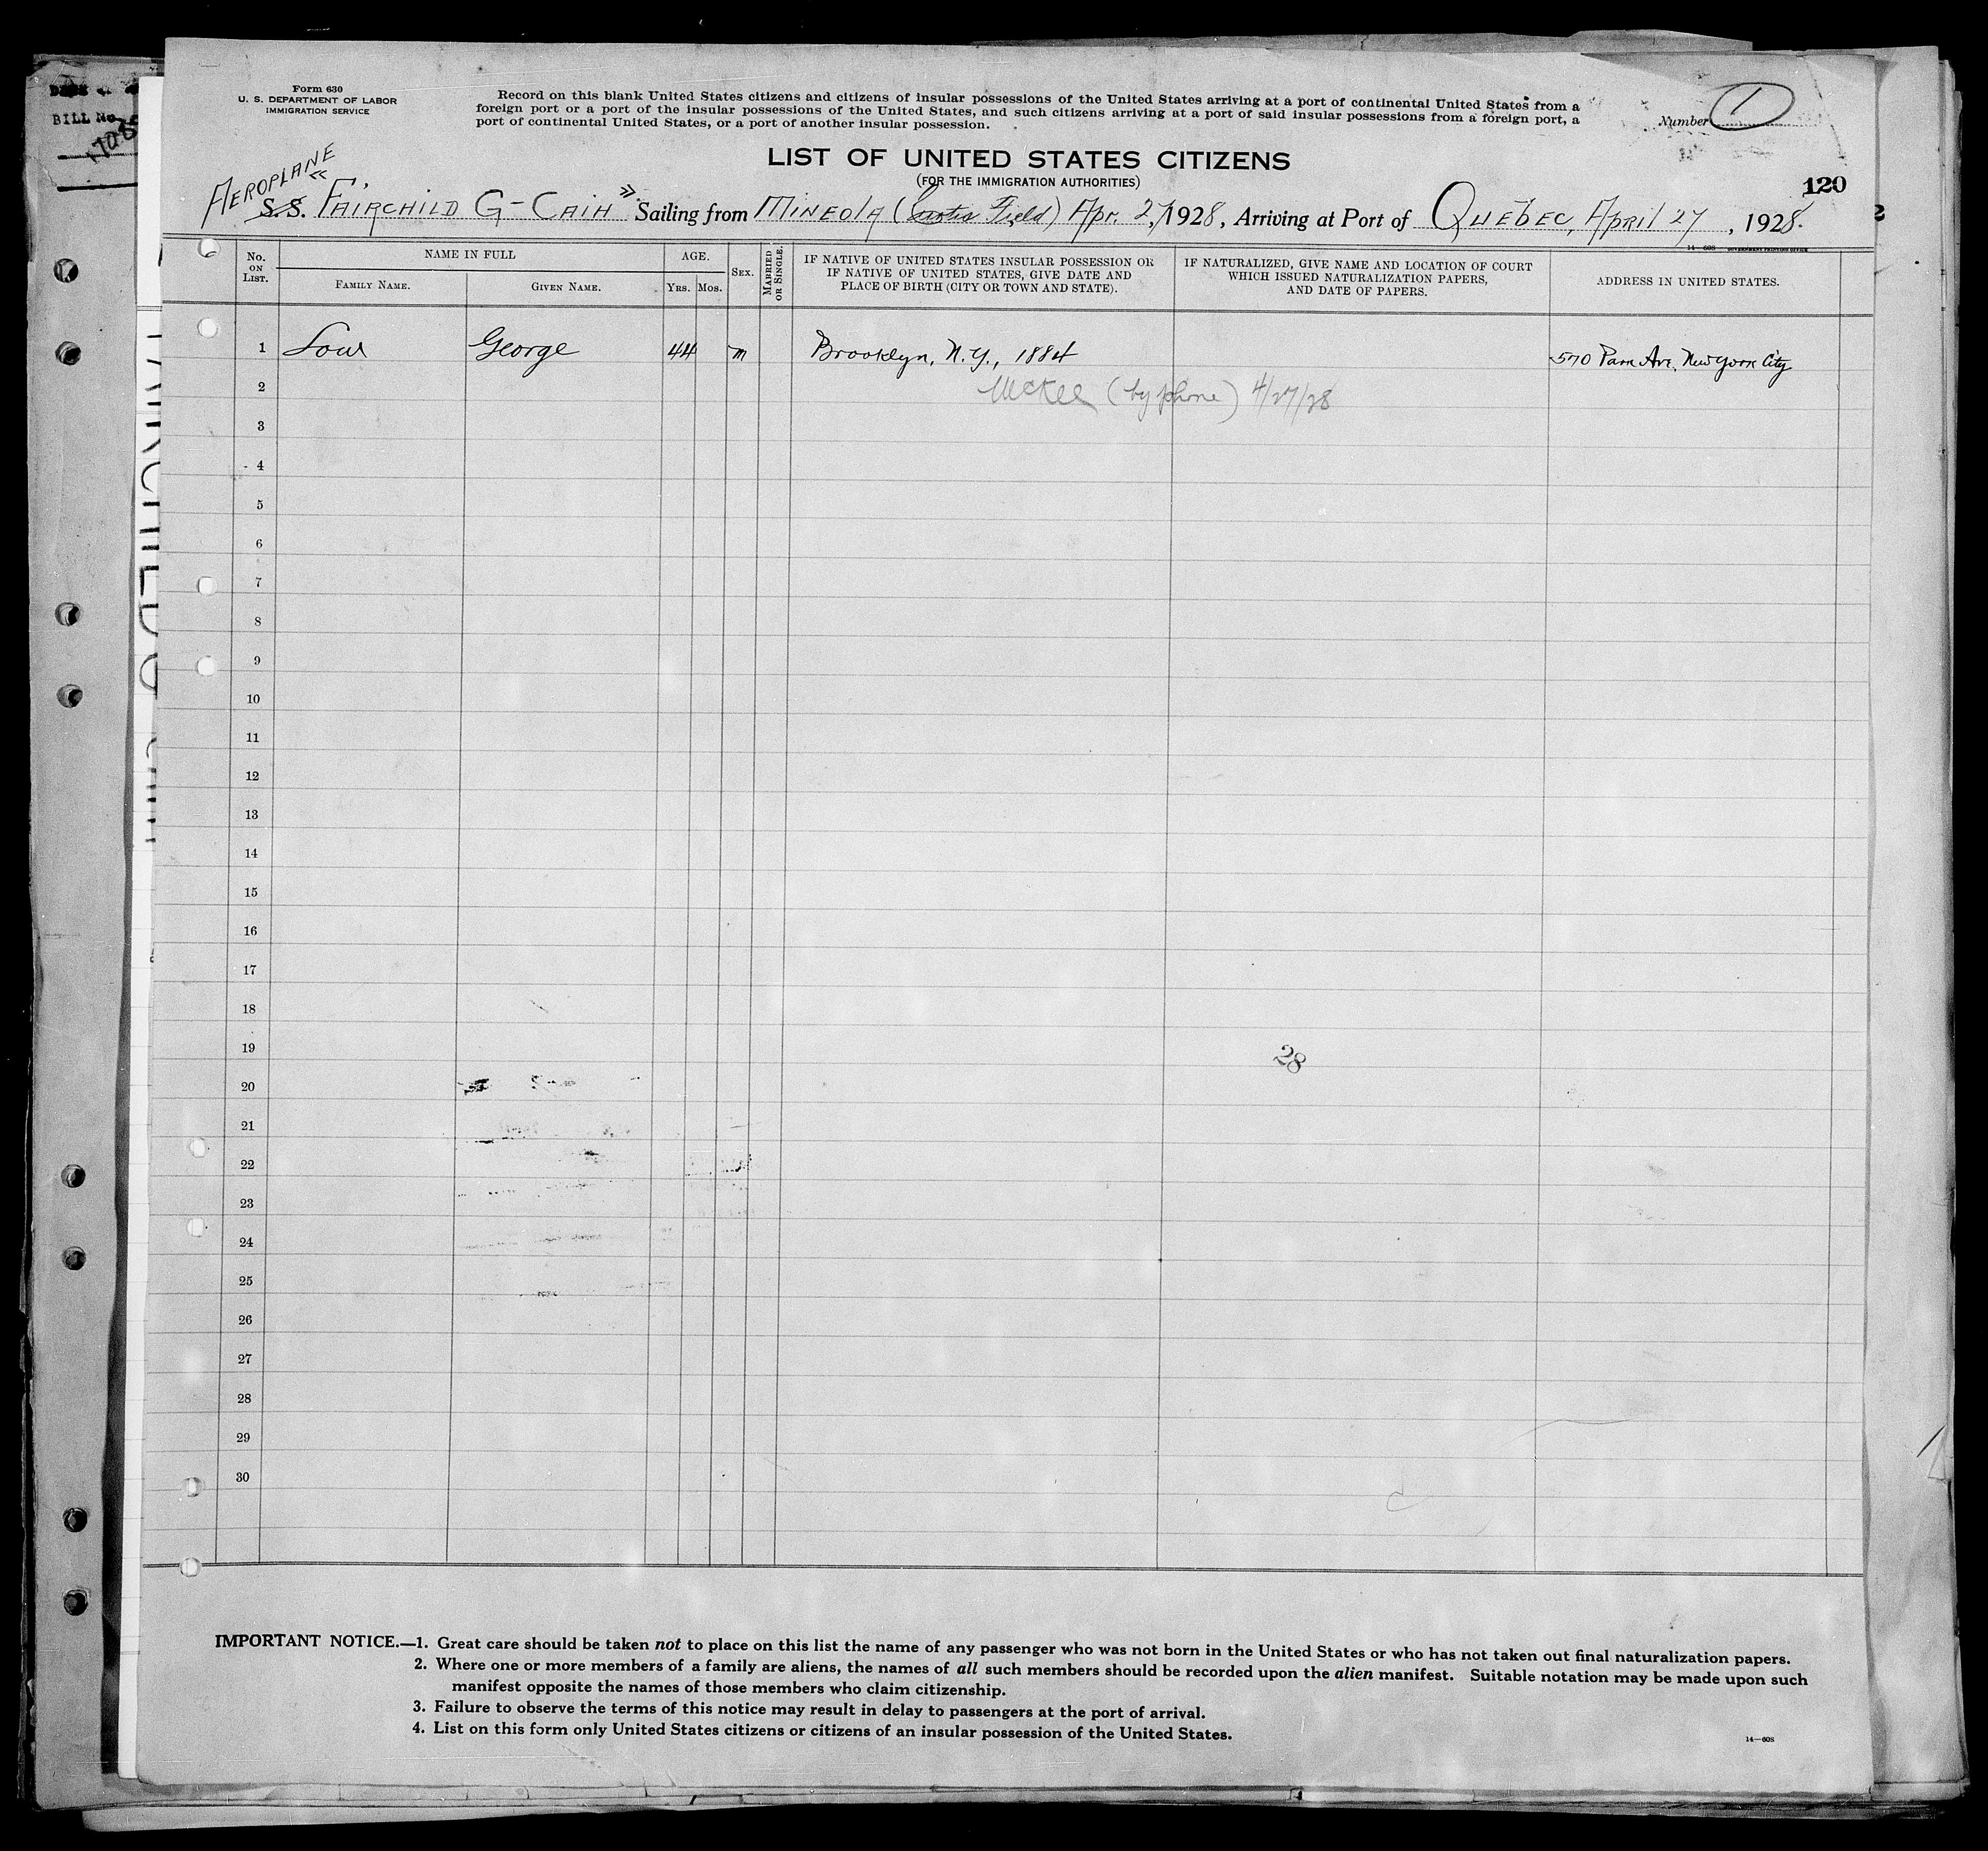 BILL No.
Form 630
U. S. DEPARTMENT OF LABOR
IMMIGRATION SERVICE
Record on this blank United States citizens and citizens of insular possessions of the United States arriving at a port of continental United States from a
foreign port or a port of the insular possessions of the United States, and such citizens arriving at a port of said insular possessions from a foreign port, a
port of continental United States, or a port of another insular possession.
Number 1
LIST OF UNITED STATES CITIZENS
(FOR THE IMMIGRATION AUTHORITIES)
120
AEROPLANE
S.S. "FAIRCHILD G-CAIH" Sailing from MINEOLA (Curtis Field) Apr. 27, 1928, Arriving at Port of QUEBEC, APRIL 27, 1928.
14—608 GOVERNMENT PRINTING OFFICE
No. ON LIST.
NAME IN FULL
FAMILY NAME.
GIVEN NAME.
AGE.
YRS.
MOS.
SEX.
MARRIED OR SINGLE.
IF NATIVE OF UNITED STATES INSULAR POSSESSION OR
IF NATIVE OF UNITED STATES, GIVE DATE AND
PLACE OF BIRTH (CITY OR TOWN AND STATE).
IF NATURALIZED, GIVE NAME AND LOCATION OF COURT
WHICH ISSUED NATURALIZATION PAPERS,
AND DATE OF PAPERS.
ADDRESS IN UNITED STATES.
1 George 44 m Brooklyn, N.Y., 1884 570 Park Ave, New York City
2 McKee (by phone) 4/27/28
3
4
5
6
7
8
9
10
11
12
13
14
15
16
17
18
19
28
20
21
22
23
24
25
26
27
28
29
30
IMPORTANT NOTICE.—1. Great care should be taken not to place on this list the name of any passenger who was not born in the United States or who has not taken out final naturalization papers.
2. Where one or more members of a family are aliens, the names of all such members should be recorded upon the alien manifest. Suitable notation may be made upon such
manifest opposite the names of those members who claim citizenship.
3. Failure to observe the terms of this notice may result in delay to passengers at the port of arrival.
4. List on this form only United States citizens or citizens of an insular possession of the United States.
14—608